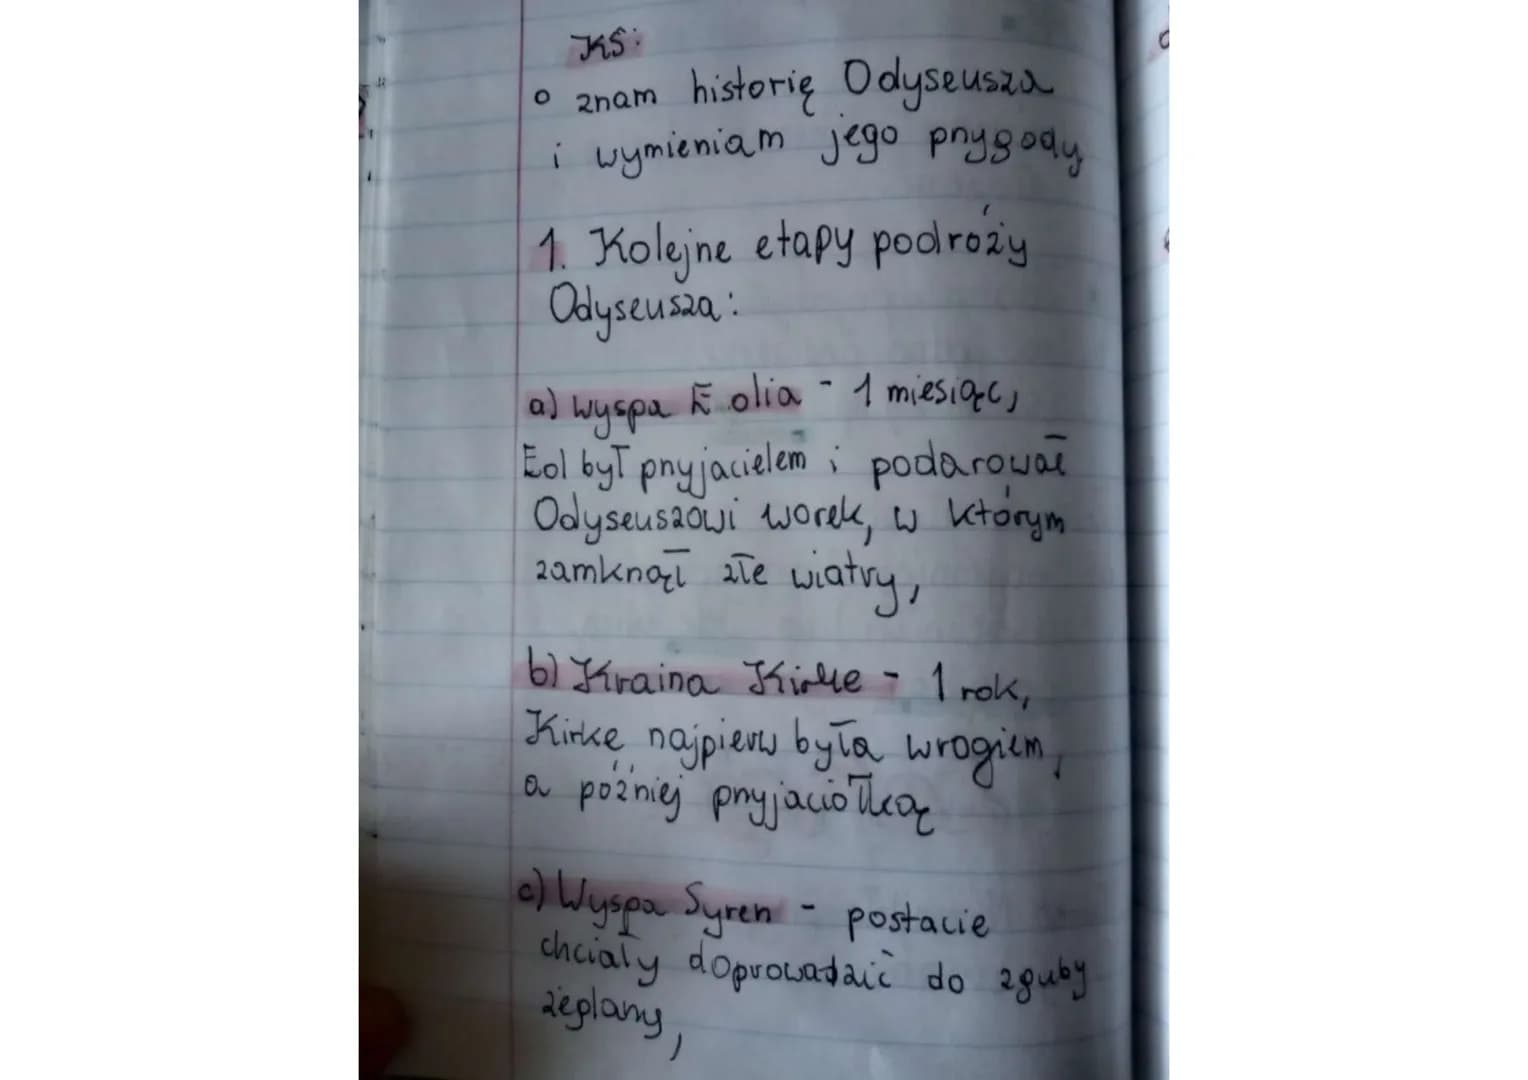 KS:
o znam historię Odyseusza
i wymieniam jego przygody
1. Kolejne etapy podróży
Odyseusza:
a) wyspa Eolia - 1 miesiąc,
Eol był przyjacielem i podarował
Odyseuszowi worek, w którym
zamknął złe wiatry,
b) Kraina Kirke - 1 rok,
Kirke najpierw była wrogiem,
a później przyjaciółką
c) Wyspa Syren - postacie
chciały doprowadzić do zguby
żeglarzy,